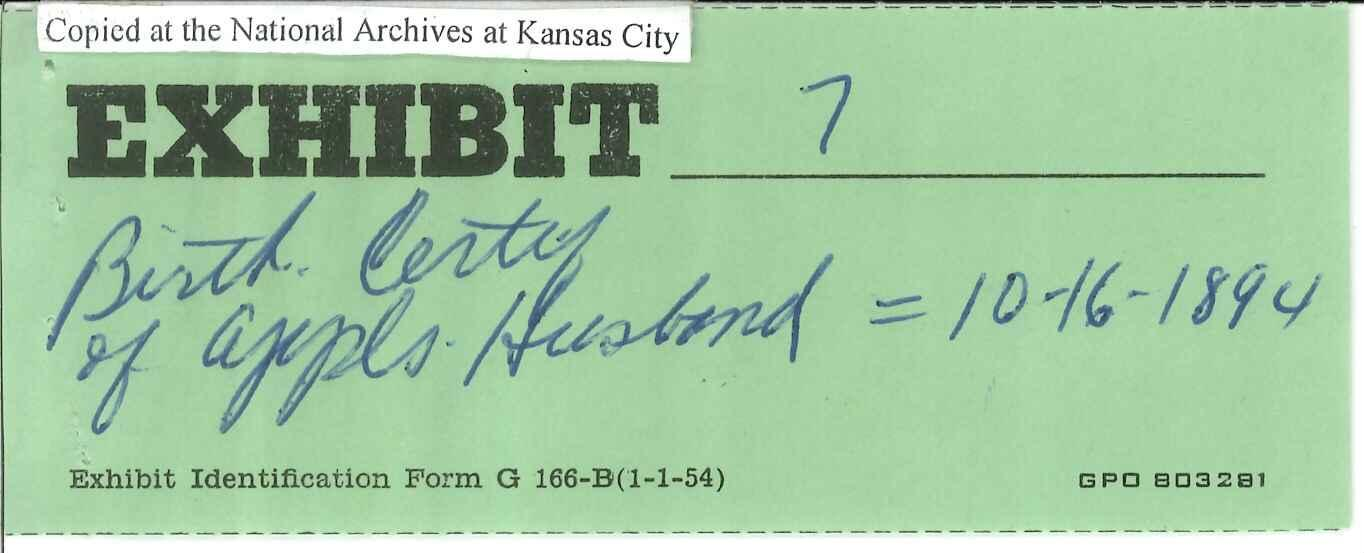 Copied at the National Archives at Kansas City
EXHIBIT 7
Birth. Certif
of appls. Husband = 10-16-1894
Exhibit Identification Form G 166-B(1-1-54)
GPO 803281